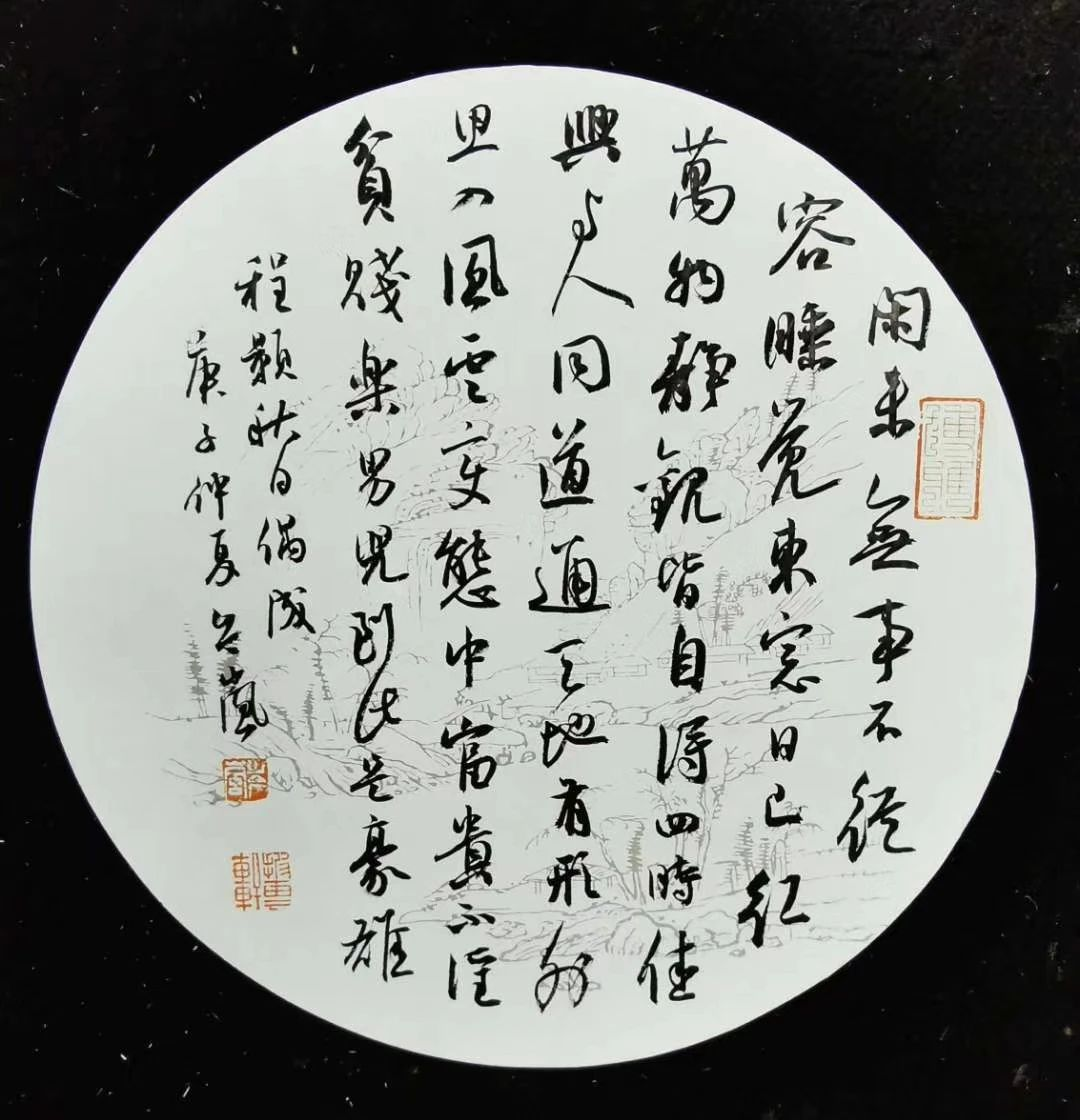 閑来無事不從
容睡覺東窓日已紅
萬物静觀皆自得四時佳
興与人同道通天地有形外
思入風雲变態中富貴不淫
貧賤楽男兒到此是豪雄
程顥秋日偶成
庚子仲夏嵐